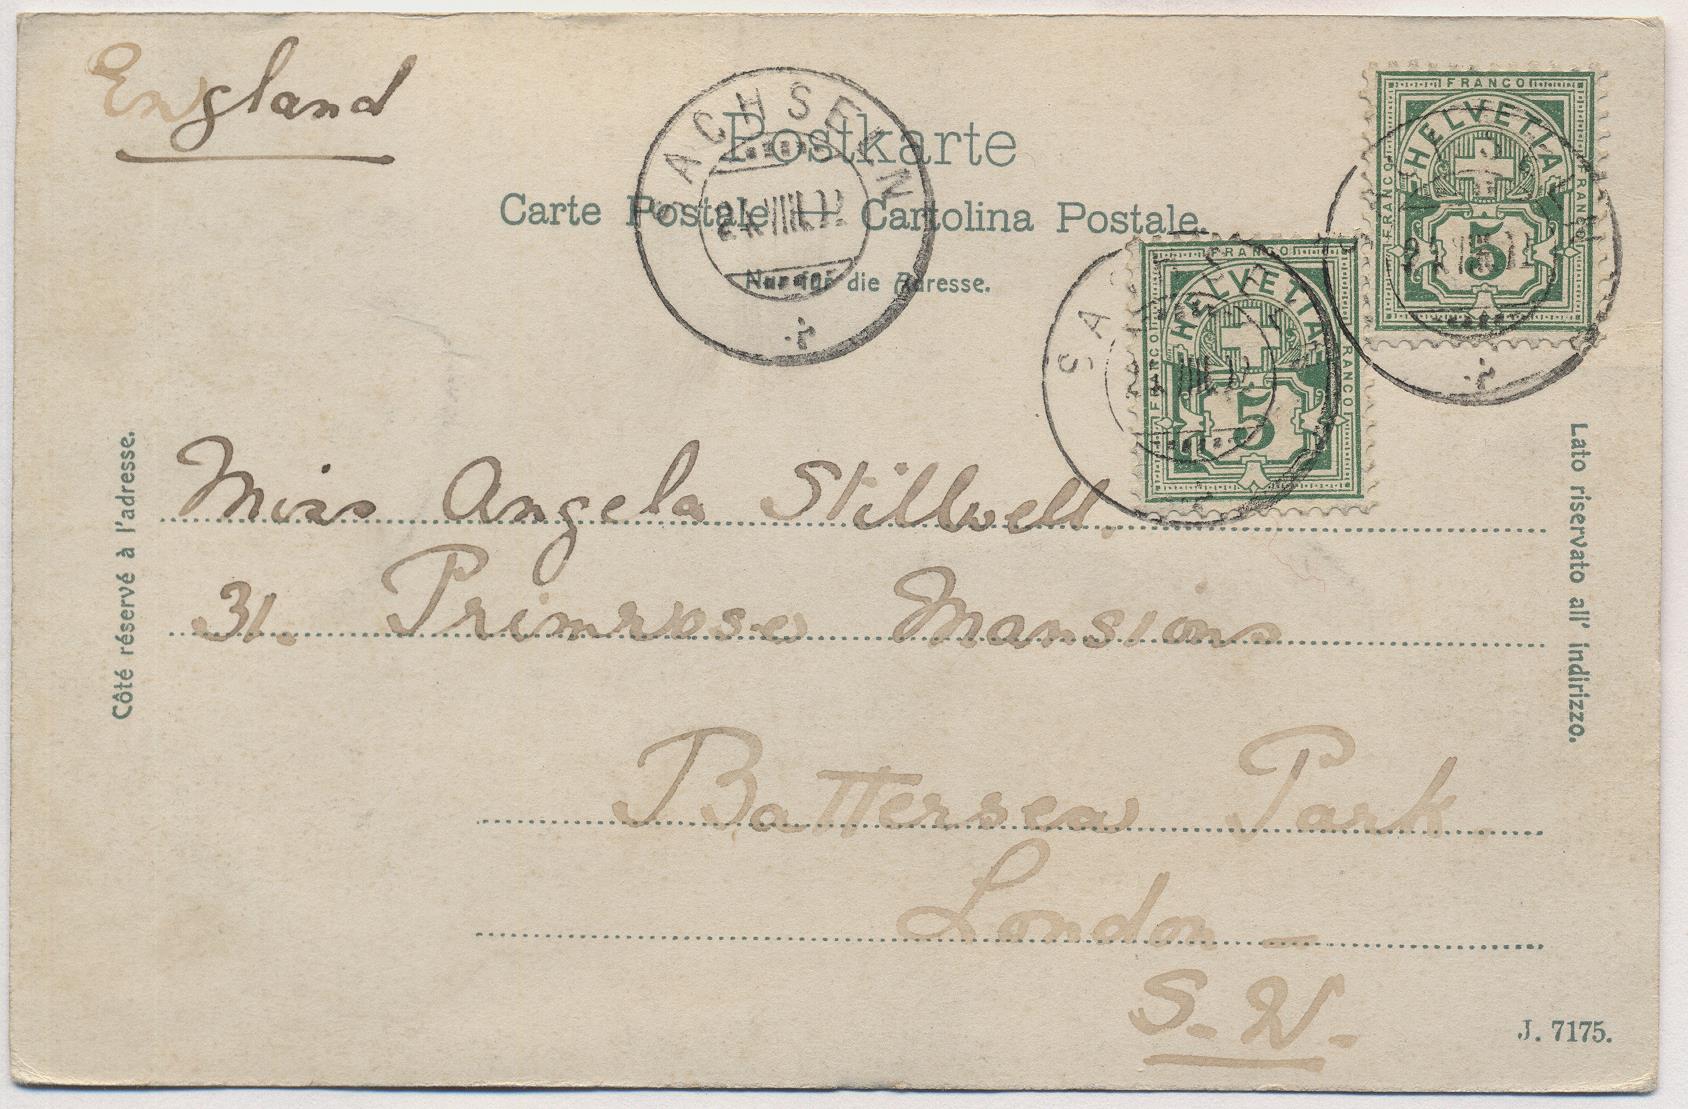 England
SACHSELN
Postkarte
Carte Postale — Cartolina Postale.
Nur für die Adresse.
FRANCO
HELVETIA
FRANCO
FRANCO
5
FRANCO
HELVETIA
FRANCO
FRANCO
5
Côté réservé à l'adresse.
Lato riservato all' indirizzo.
Miss Angela Stillwell.
31. Primrose Mansions
Battersea Park
London –
S. W.
J. 7175.